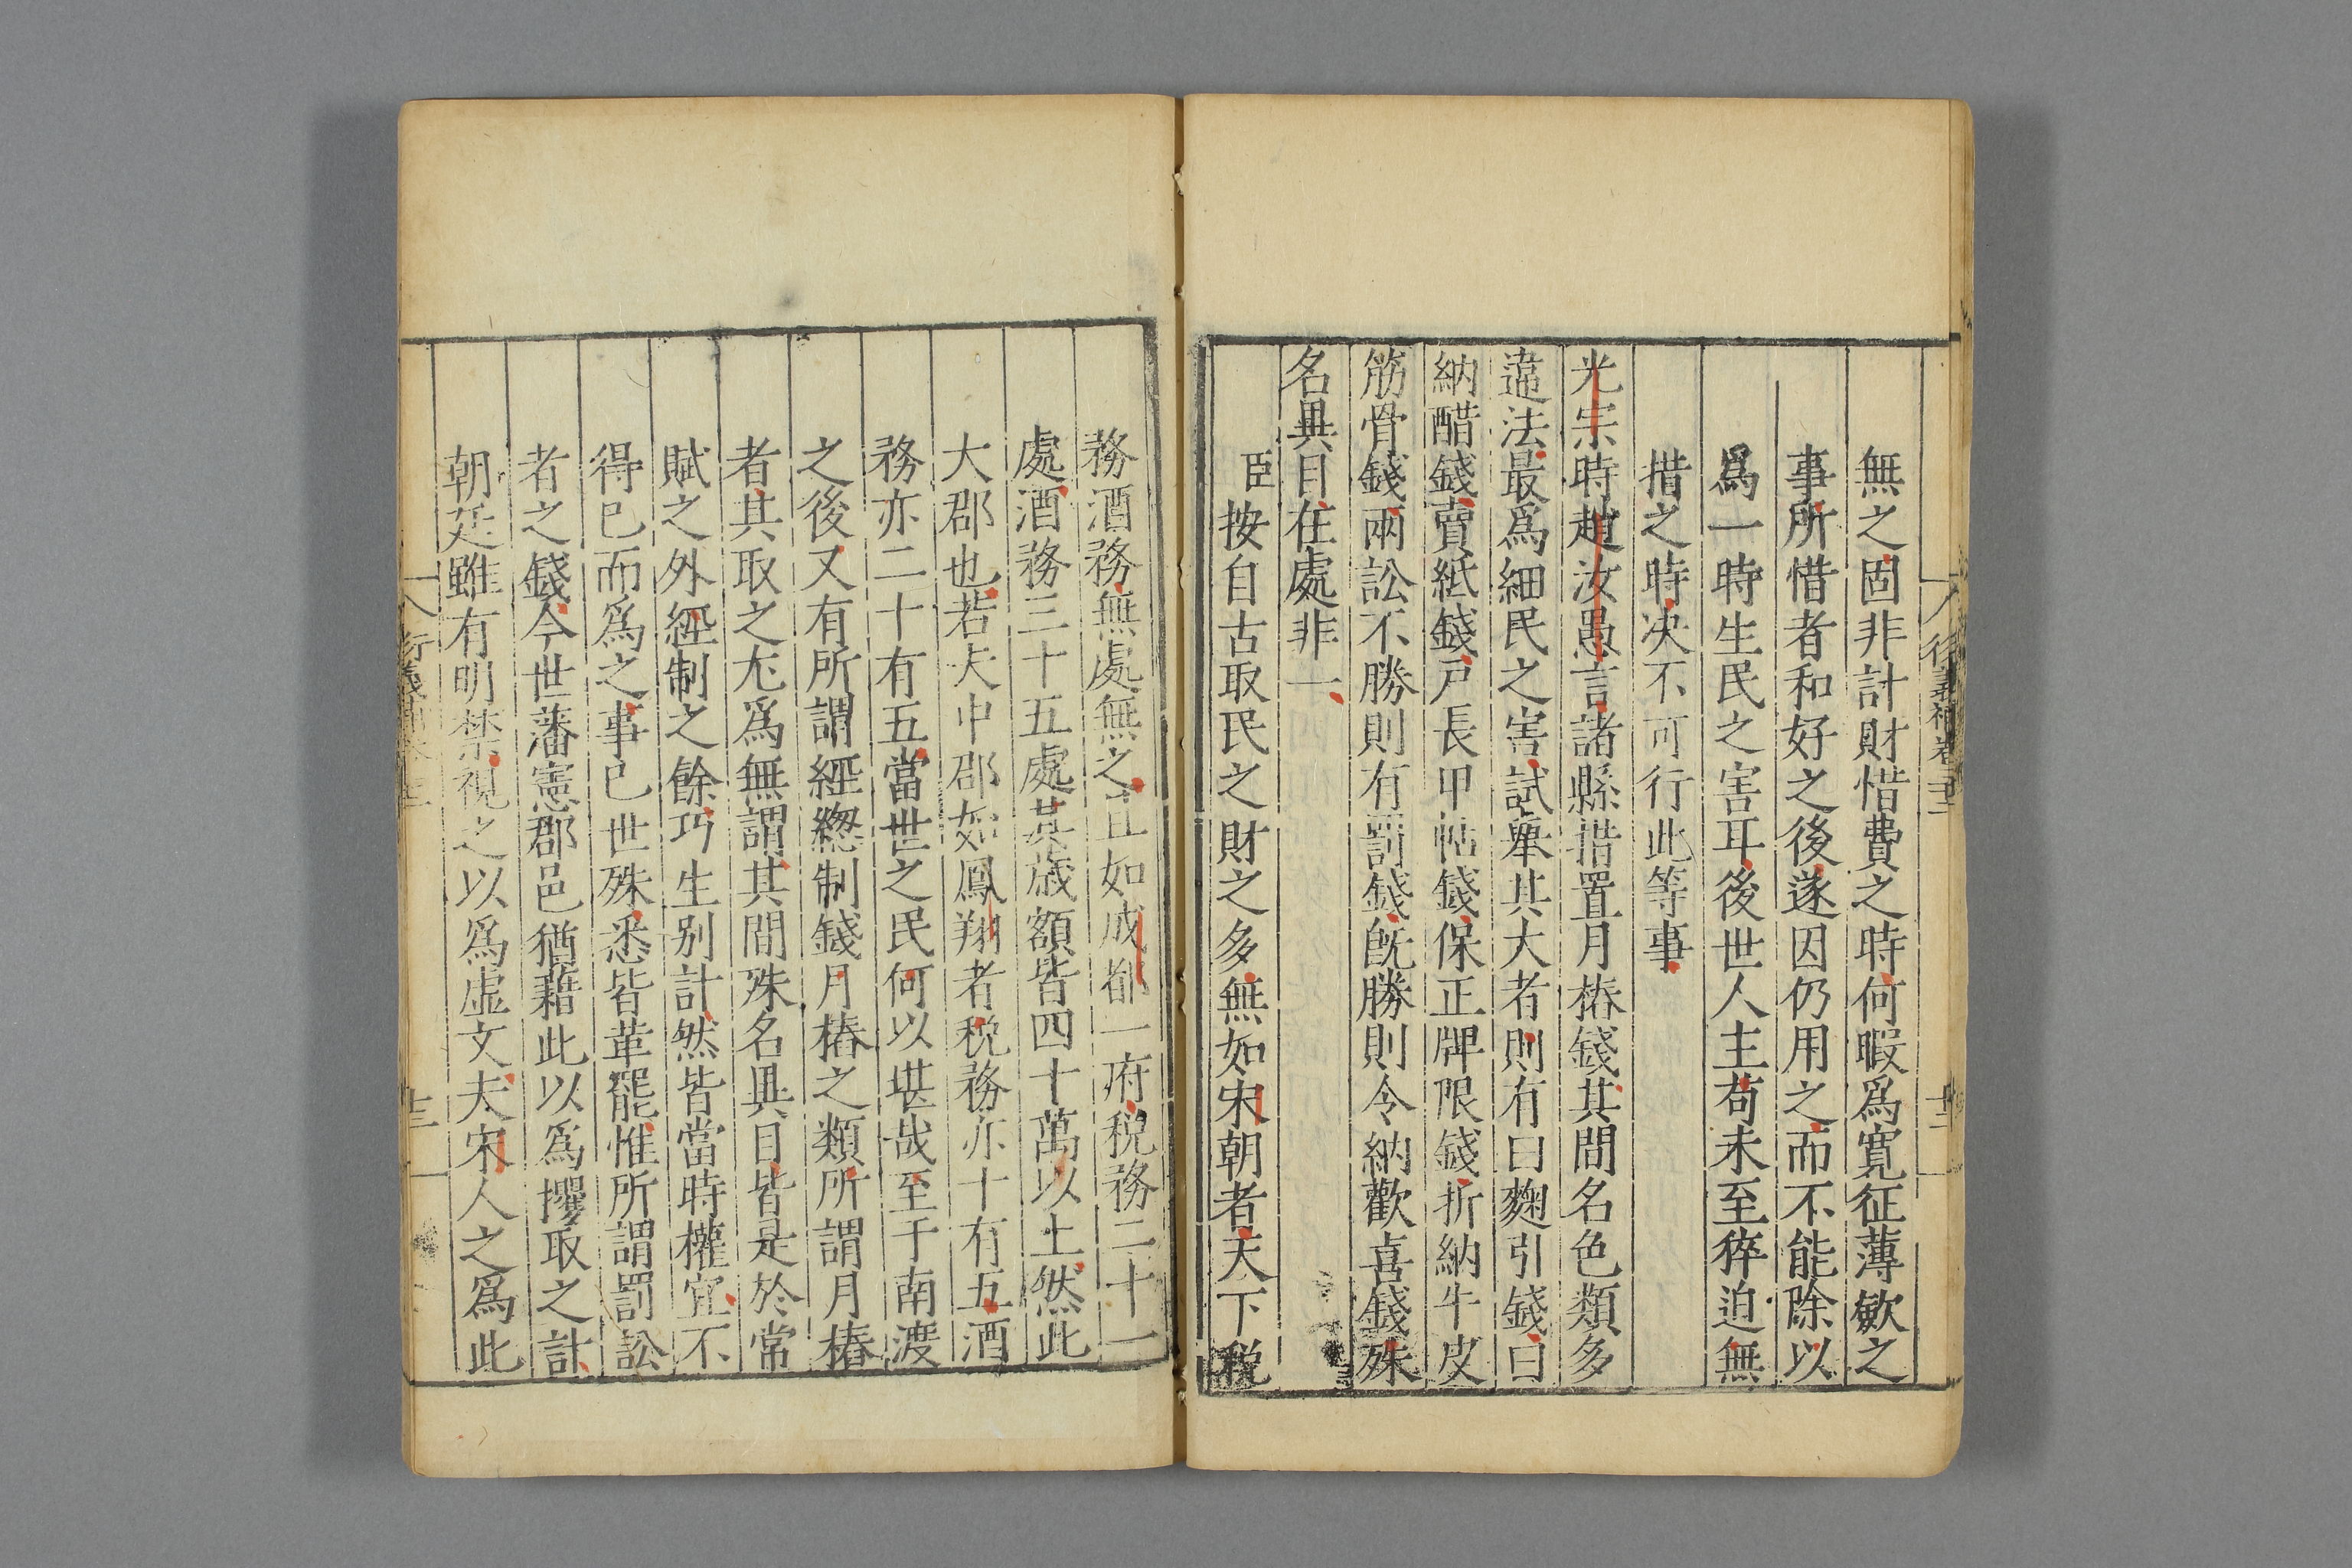 無之固非計財惜費之時何暇爲寛征薄斂之
事所惜者和好之後遂因仍用之而不能除以
爲一時生民之害耳後世人主苟未至猝迫無
措之時决不可行此等事
光宗時趙汝愚言諸縣措置月樁錢其間名色類多
違法最爲細民之害試舉其大者則有曰麴引錢曰
納醋錢賣紙錢戸長甲帖錢保正牌限錢折納牛皮
筋骨錢兩訟不勝則有罰錢旣勝則令納歡喜錢殊
名異目在處非一
臣按自古取民之財之多無如宋朝者天下稅
務酒務無處無之且如成都一府稅務二十一
處酒務三十五處其歲額皆四十萬以上然此
大郡也若夫中郡如鳳翔者稅務亦十有五酒
務亦二十有五當世之民何以堪哉至于南渡
之後又有所謂經緫制錢月樁之類所謂月樁
者其取之尤爲無謂其間殊名異目皆是於常
賦之外經制之餘巧生别計然皆當時權宜不
得已而爲之事已世殊悉皆革罷惟所謂罰訟
者之錢今世藩憲郡邑猶藉此以爲攫取之計
朝廷雖有明禁視之以爲虛文夫宋人之爲此